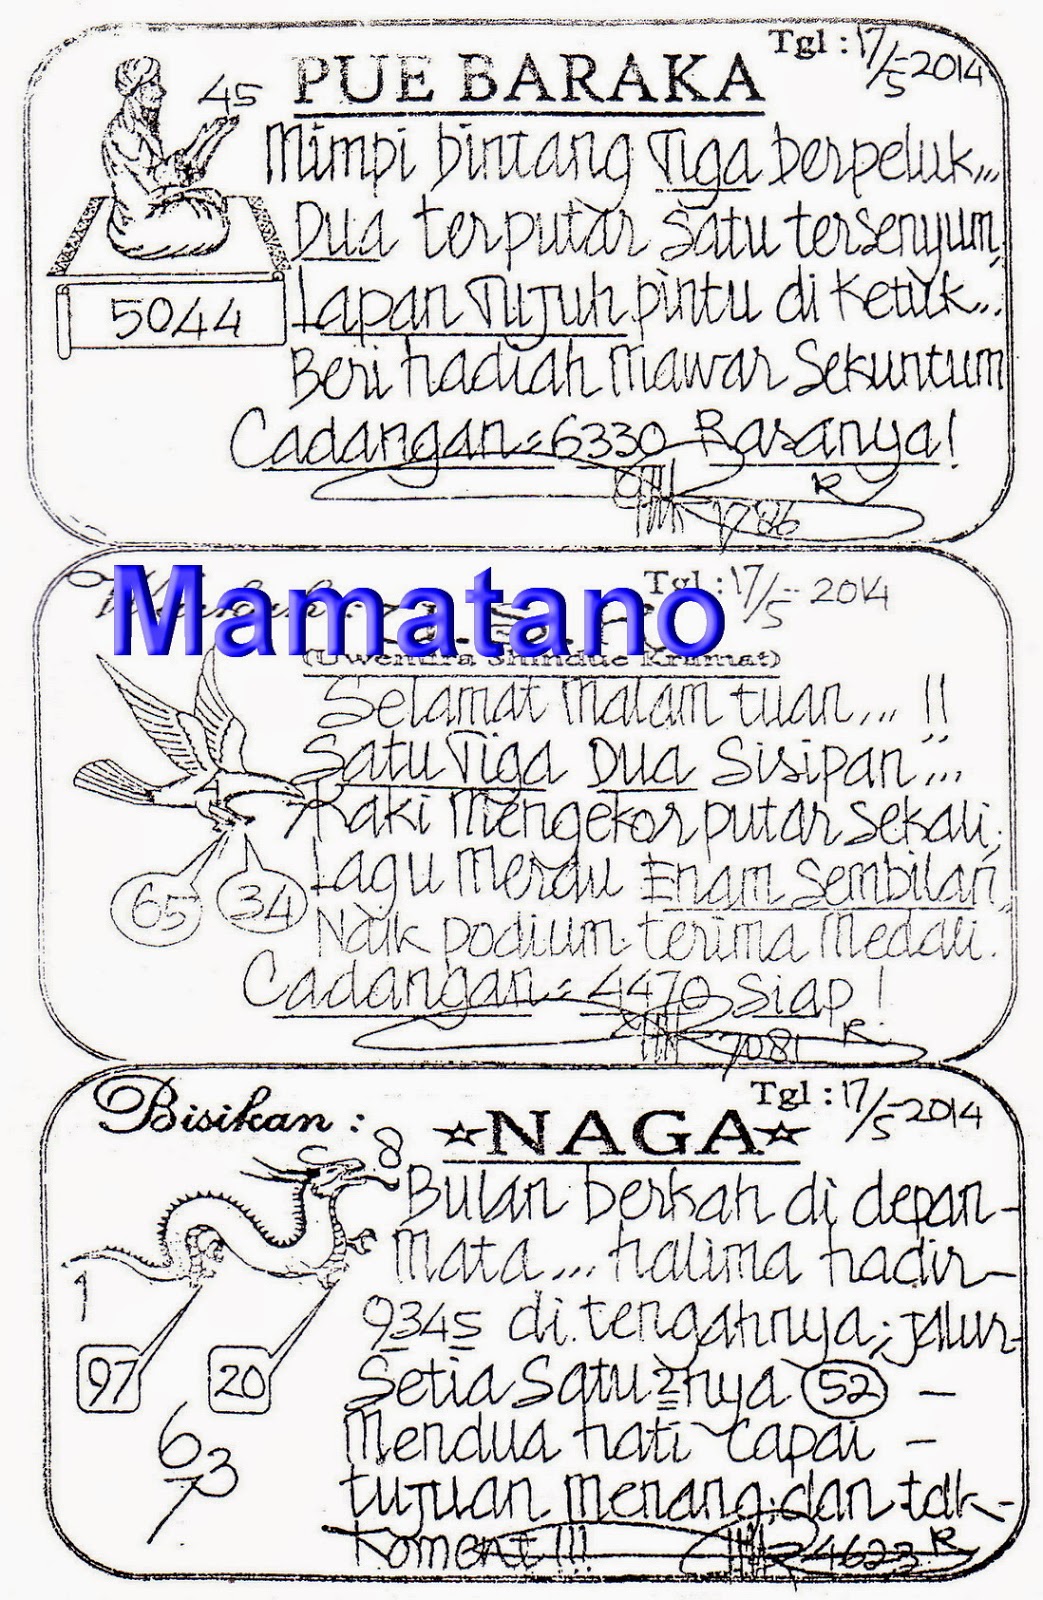 Tgl : 17/5-2014
PUE BARAKA
45
Mimpi bintang Tiga berpeluk...
Dua terputar satu tersenyum,
5044
Lapan Tujuh pintu di ketuk...
Beri hadiah Mawar Sekuntum
Cadangan = 6330 Rasanya!
R
1786
Tgl : 17/5-2014
Mamatano
(Uwentira Shindue Kramat)
Selamat Malam tuan... !!
Satu Tiga Dua Sisipan...
4
7
Kaki Mengekor putar sekali,
65 34
Lagu Merdu Enam Sembilan,
Naik podium terima Medali.
Cadangan = 4470 Siap!
7081 R.
Tgl : 17/5-2014
Bisikan :
☆NAGA☆
8
Bulan berkah di depan-
Mata... halima hadir-
1
9345 di tengahnya; jalur-
97 20
Setia Satu 2nya 52 -
6
73
Mendua hati capai -
tujuan menang. dan tdk-
koment!!! 4623 R